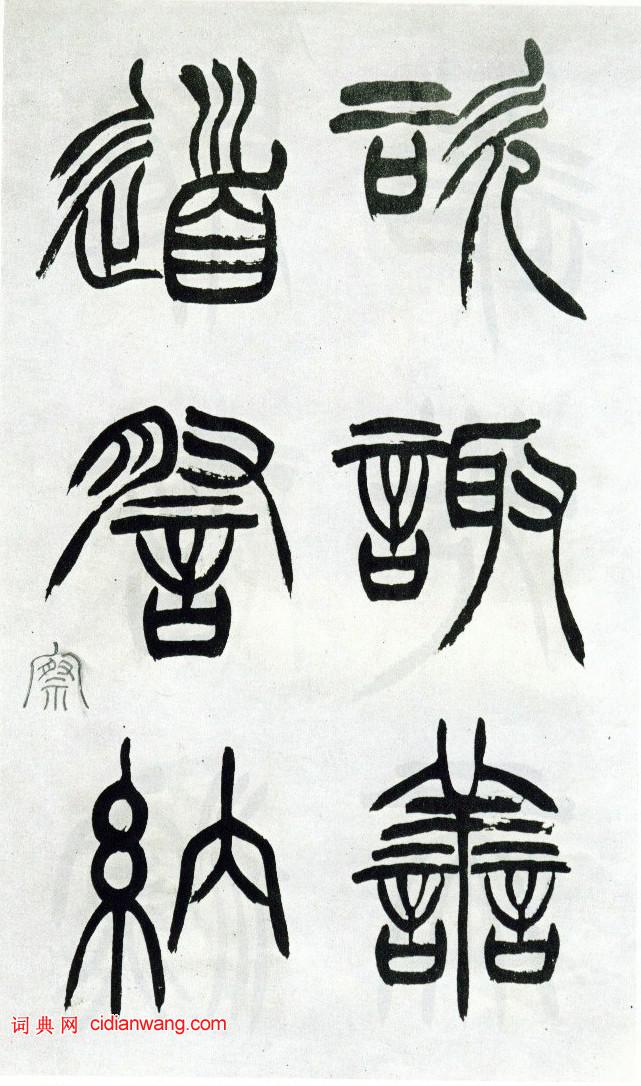 咨諏譱
道詧納
察
词典网 cidianwang.com